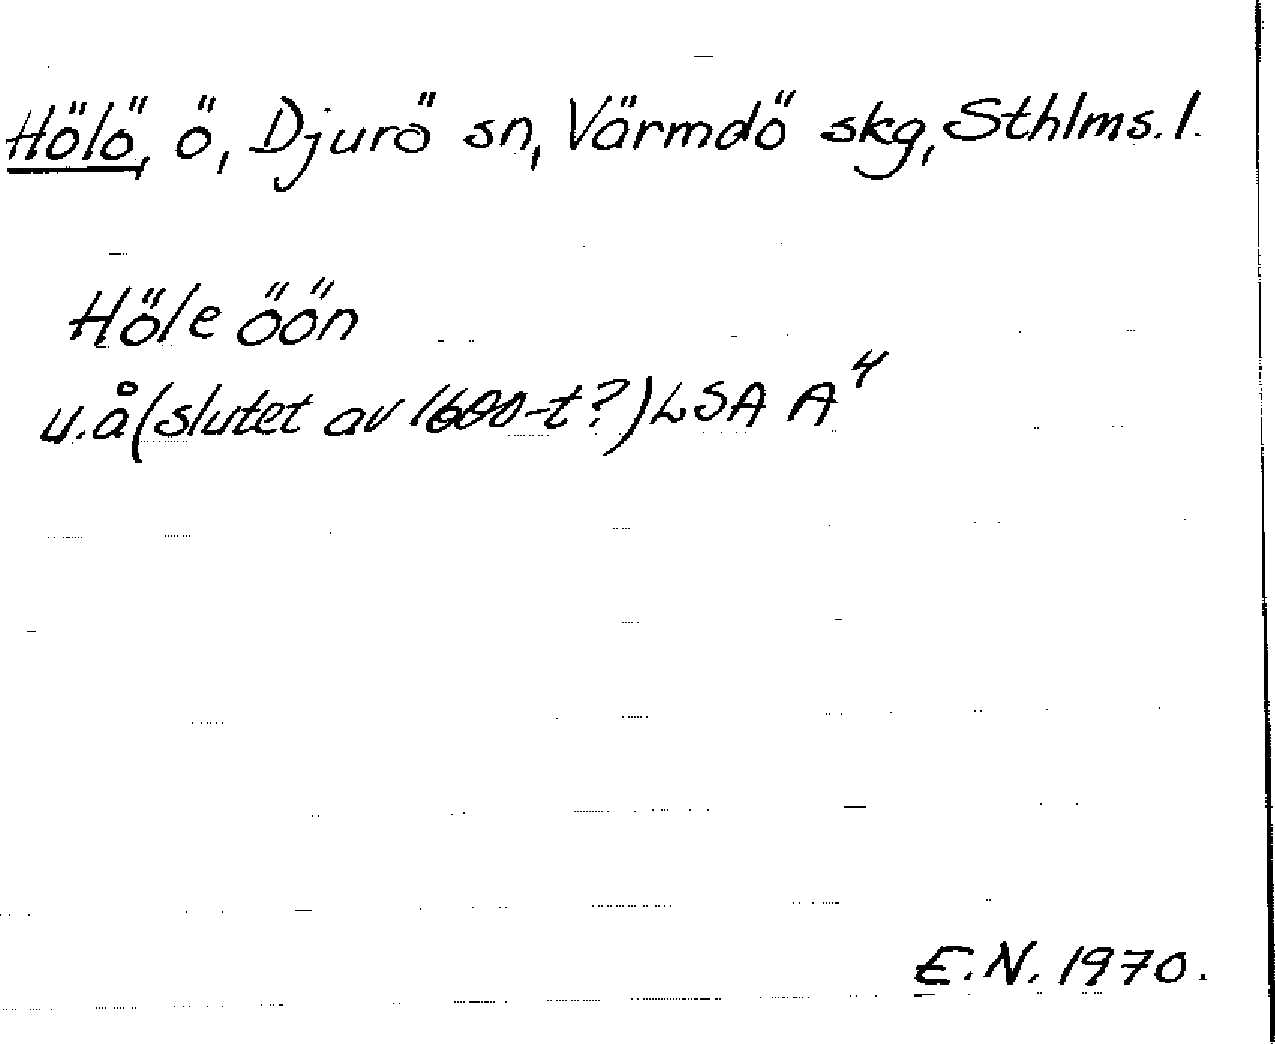 Hölö, ö, Djurö sn, Värmdö skg, Sthlms. l.
Höle öön
u.å (slutet av 1600-t?) LSA A⁴
E.N. 1970.